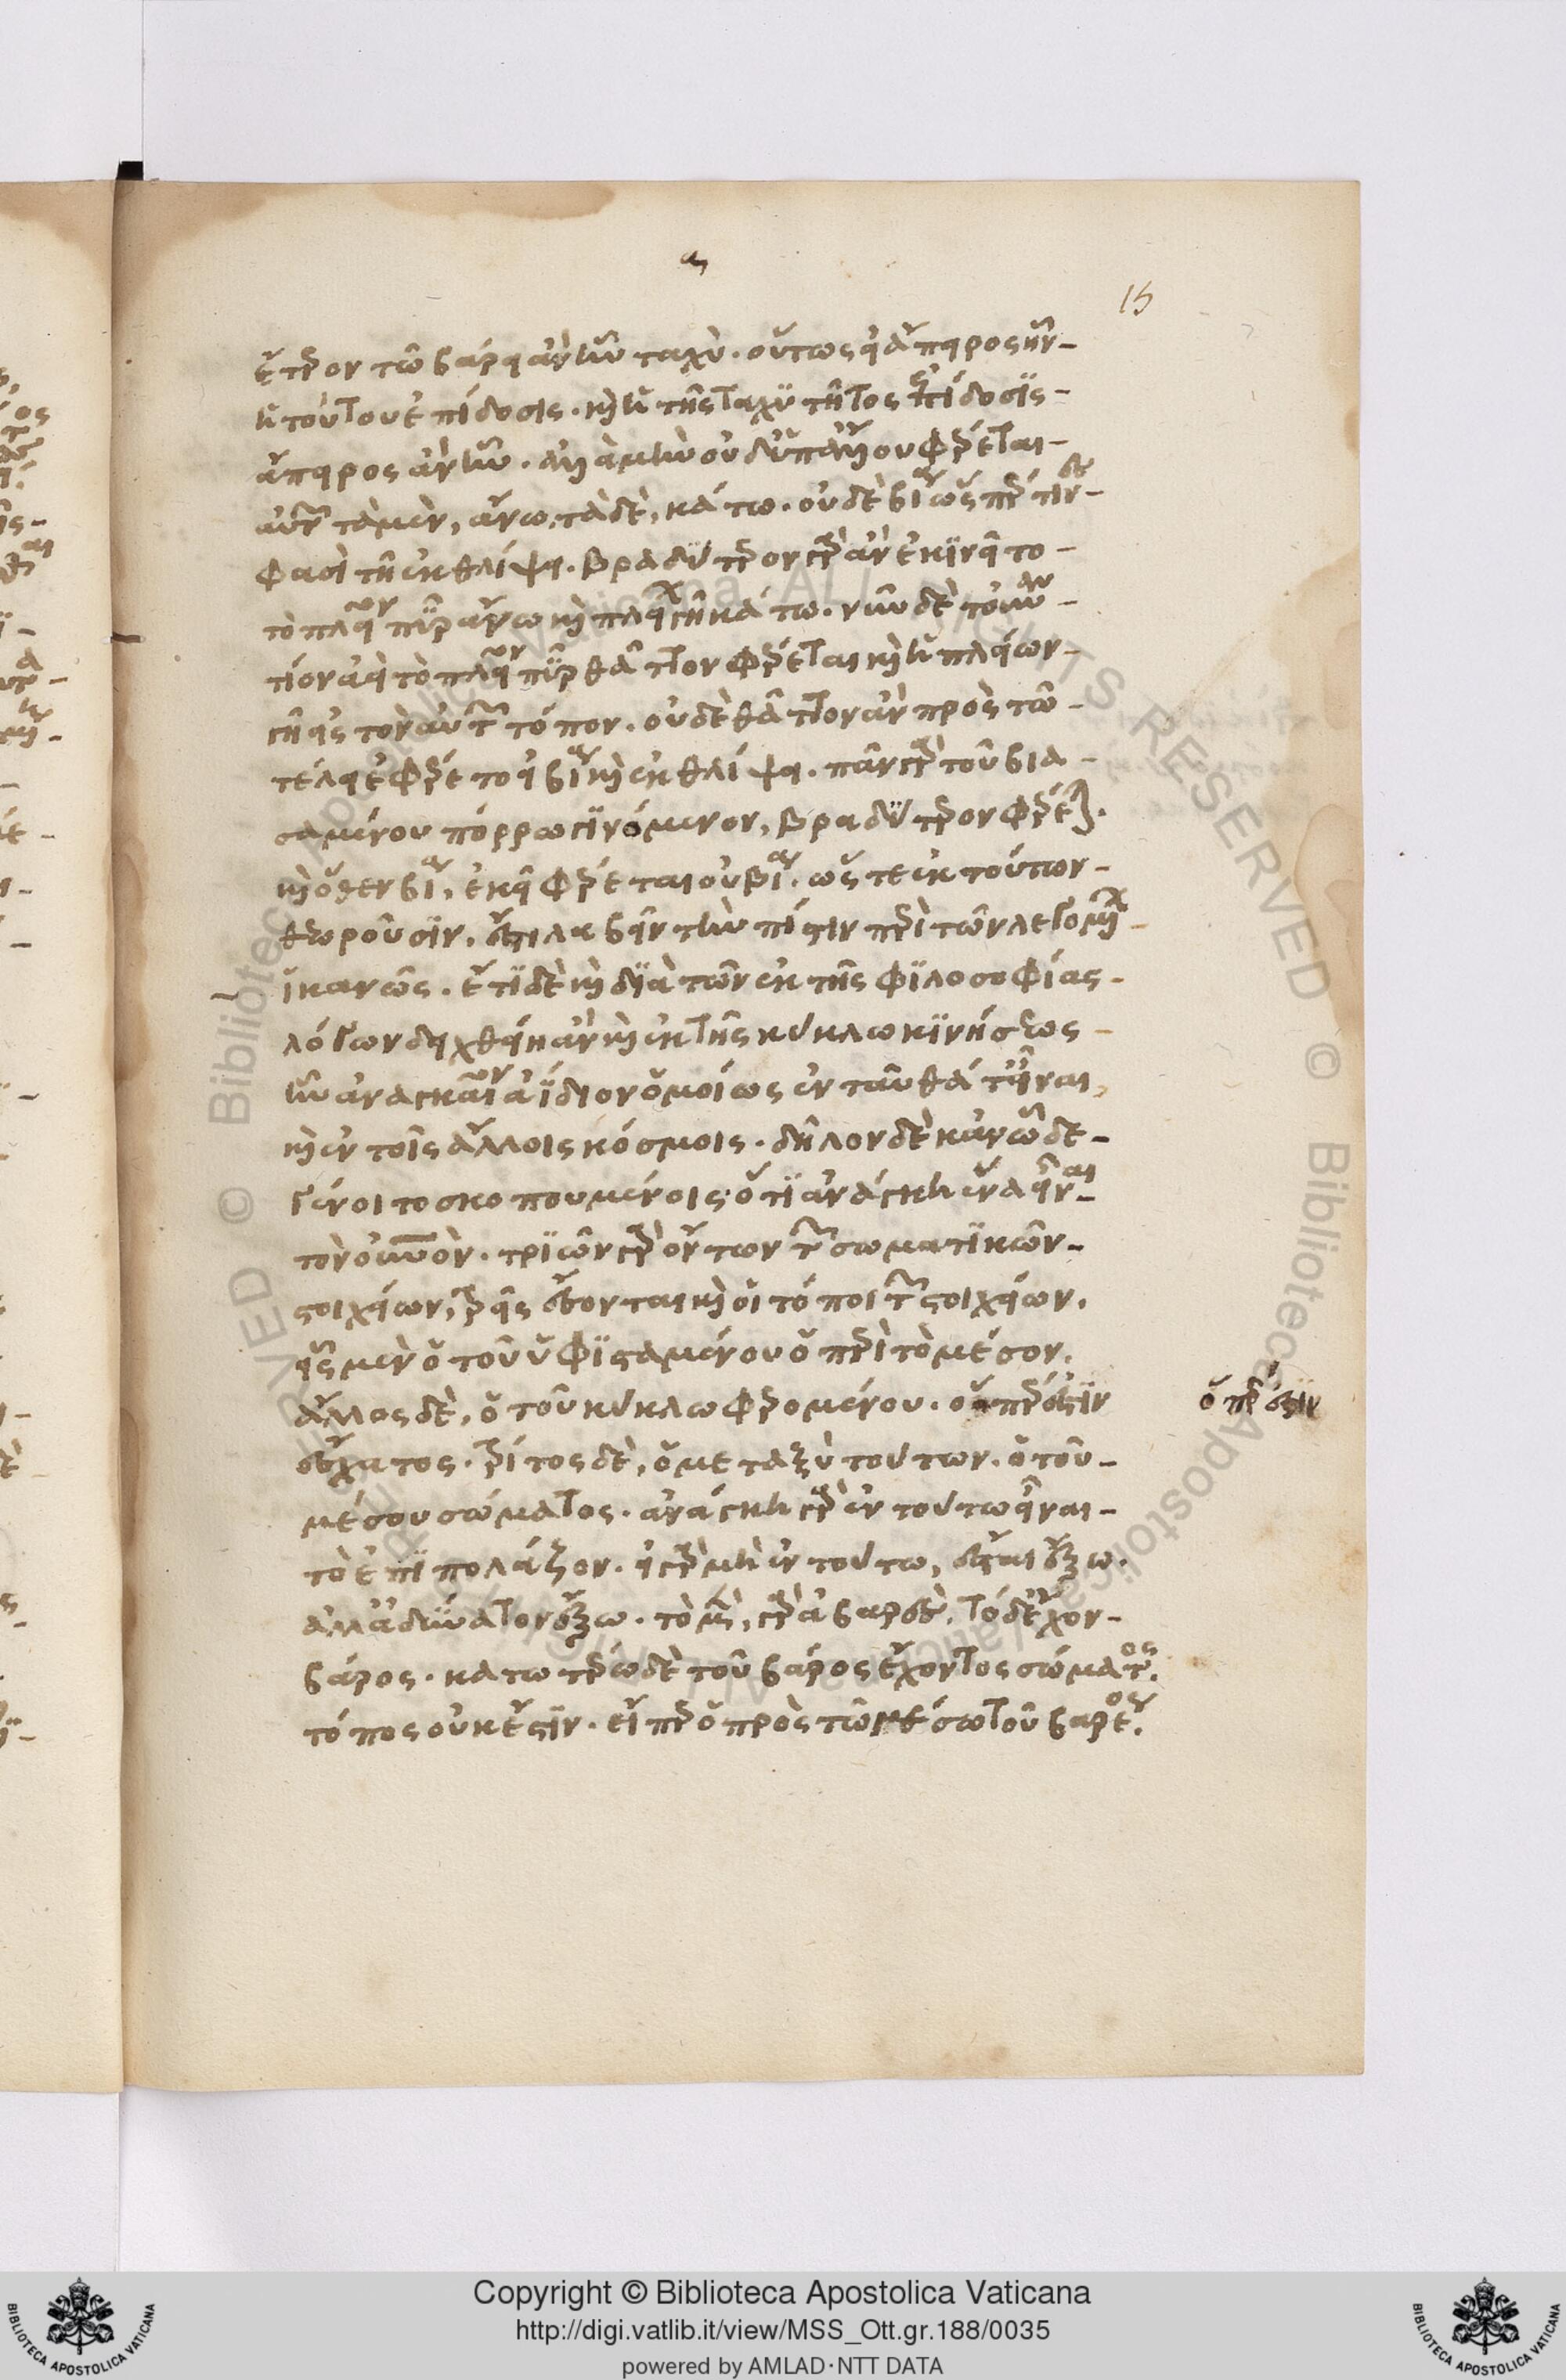 ἕτερον τῷ βάρει ἂν ἦν ταχύ. οὕτως εἰ ἄπειρος ἦν
ἡ τούτου ἐπίδοσις. καὶ ἡ τῆς ταχυτῆτος ἐπίδοσις
ἄπειρος ἂν ἦν. ἀλλὰ μὴν οὐδ' ὑπ' ἄλλου φέρεται
αὐτῶν τὰ μὲν, ἄνω. τὰ δὲ, κάτω. οὐδὲ βίᾳ ὥσπερ τινές
φασὶ τῇ ἐκθλίψει. βραδύτερον γὰρ ἂν ἐκινεῖτο
τὸ πλεῖον πῦρ ἄνω καὶ πλείων γῆ κάτω. νῦν δὲ τοὐναν
τίον ἀεὶ τὸ πλεῖον πῦρ θᾶττον φέρεται καὶ ἡ πλείων
γῆ εἰς τὸν αὐτῆς τόπον. οὐδὲ θᾶττον ἂν πρὸς τῷ
τέλει ἐφέρετο εἰ βίᾳ καὶ ἐκθλίψει. πᾶν γὰρ τοῦ βια
σαμένου πόρρω γινόμενον, βραδύτερον φέρεται.
καὶ ὅθεν βίᾳ, ἐκεῖ φέρεται οὐ βίᾳ. ὥστε ἐκ τούτων
θεωροῦσιν, ἔστι λαβεῖν τὴν πίστιν περὶ τῶν λεγομένων
ἱκανῶς. ἔτι δὲ καὶ διὰ τῶν ἐκ τῆς φιλοσοφίας
λόγων δειχθείη ἂν καὶ ἐκ τῆς κύκλω κινήσεως
ἣν ἀναγκαῖον ἀΐδιον ὁμοίως ἐνταῦθά τ' εἶναι,
καὶ ἐν τοῖς ἄλλοις κόσμοις. δῆλον δὲ κἂν ὧδε
γένοιτο σκοπουμένοις, ὅτι ἀνάγκη ἕνα εἶναι
τὸν οὐρανόν. τριῶν γὰρ ὄντων τῶν σωματικῶν
στοιχείων, τρεῖς ἔσονται καὶ οἱ τόποι τῶν στοιχείων.
εἷς μὲν ὁ τοῦ ὑφισταμένου ὁ περὶ τὸ μέσον.
ἄλλος δὲ, ὁ τοῦ κύκλω φερομένου. ὅσπερ ἐστὶν
ἔσχατος. τρίτος δὲ, ὁ μεταξὺ τούτων. ὁ τοῦ
μέσου σώματος. ἀνάγκη γὰρ ἐν τούτω εἶναι
τὸ ἐπιπολάζον. εἰ γὰρ μὴ ἐν τούτω, ἔσται ἔξω.
ἀλλ' ἀδύνατον ἔξω. τὸ μὲν, γὰρ ἀβαρὲς. τὸ δ' ἔχον
βάρος. κατωτέρω δὲ τοῦ βάρος ἔχοντος σώματος
τόπος οὐκ ἔστιν. εἴπερ ὁ πρὸς τῷ μέσω τοῦ βαρέος.
ὅπερ ἐστὶν
15